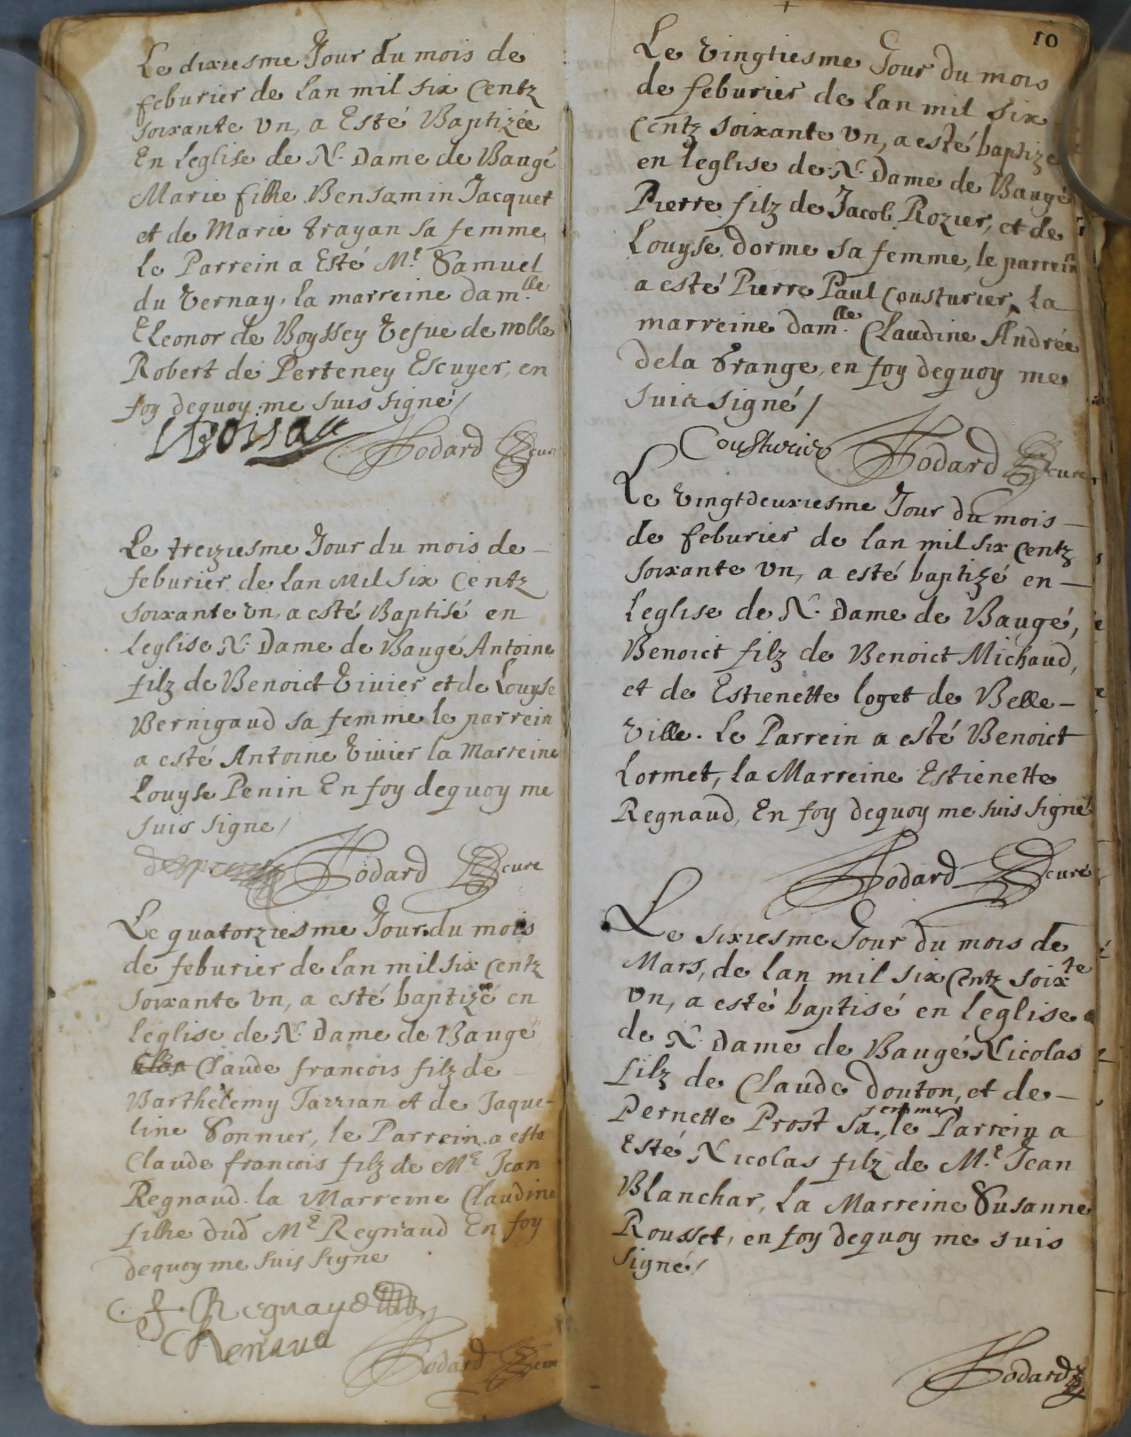 Le dixiesme Jour du mois de
feburier de lan mil six Centz
soixante Vn, a Esté Baptizée
En Leglise de N. Dame de Baugé
Marie fille Bensamin Jacquet
et de Marie Trayan sa femme
Le Parrein a Esté Mr. Samuel
du Vernay, la marreine damlle.
Eleonor de Boyssey Vefue de noble
Robert de Perteney Escuyer, en
foy dequoy me suis signé /
Hodard cure
Le treziesme Jour du mois de -
feburier de lan Mil six Centz
soixante vn, a esté Baptisé en
Leglise N. Dame de Baugé Antoine
filz de Benoict Vivier et de Louyse
Bernigaud sa femme le parrein
a esté Antoine Vivier la Marreine
Louyse Penin En foy dequoy me
suis signe /
Hodard cure
Le quatorziesme Jour du mois
de feburier de lan mil six Centz
soixante Vn, a esté baptizé en
Leglise de N. Dame de Baugé
Claude francois filz de -
Barthelemy Jarrian et de Jaque-
line Sonnier, le Parrein a esté
Claude francois filz de Me Jean
Regnaud. la Marreine Claudine
fille dud Me Regnaud En foy
dequoy me suis signe
Regnaud
Renaud
Hodard cure
10
Le Vingtiesme Jour du mois
de feburier de lan mil six
Centz soixante Vn, a esté baptizé
en Leglise de N. Dame de Baugé
Pierre filz de Jacob Rozier, et de
Louyse dorme sa femme, le parrein
a esté Pierre Paul Cousturier, La
marreine damlle. Claudine Andrée
dela Grange, en foy dequoy me
suis signé /
Cousturier Hodard cure
Le Vingtdeuxiesme Jour du mois -
de feburier de lan mil six Centz
soixante Vn, a esté baptizé en -
Leglise de N. Dame de Baugé,
Benoict filz de Benoict Michaud,
et de Estienette loget de Belle -
Ville. Le Parrein a esté Benoict
Lormet, la Marreine Estienette
Regnaud, En foy dequoy me suis signé
Hodard curé
Le sixiesme Jour du mois de
Mars, de lan mil six Centz soixte
Vn, a esté baptisé en leglise
de N. Dame de Baugé Nicolas
filz de Claude douton, et de -
Pernette Prost sa femme, le Parrein a
Esté Nicolas filz de Me. Jean
Blanchar, La Marreine Susanne
Rousset, en foy dequoy me suis
signé /
Hodard